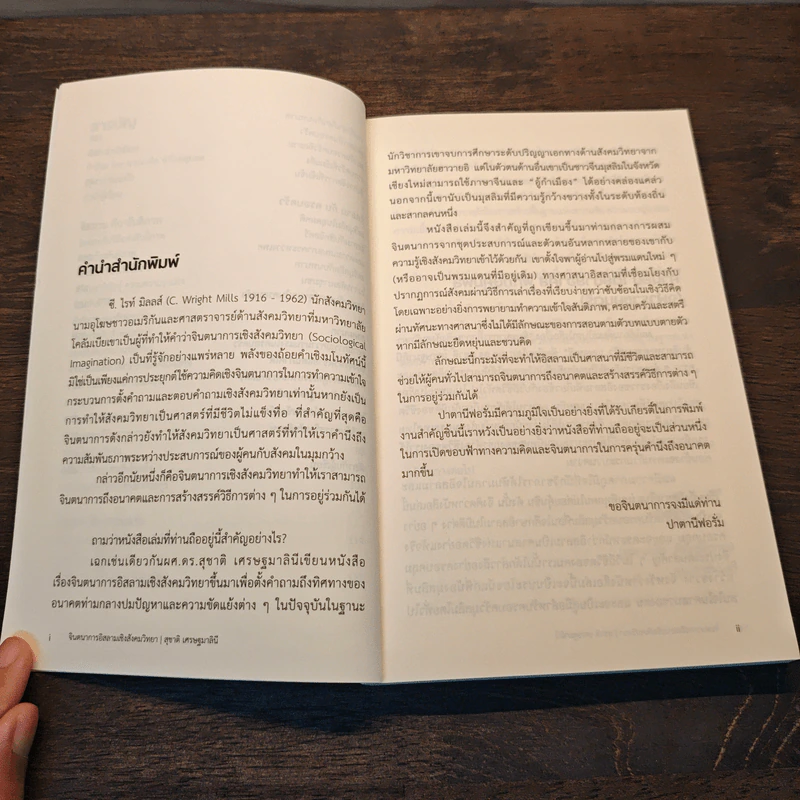 คำนำสำนักพิมพ์
ซี. ไรท์ มิลลส์ (C. Wright Mills 1916 - 1962) นักสังคมวิทยา
นามอุโฆษชาวอเมริกันและศาสตราจารย์ด้านสังคมวิทยาที่มหาวิทยาลัย
โคลัมเบียเขาเป็นผู้ที่ทำให้คำว่าจินตนาการเชิงสังคมวิทยา (Sociological
Imagination) เป็นที่รู้จักอย่างแพร่หลาย พลังของถ้อยคำเชิงมโนทัศน์นี้
มิใช่เป็นเพียงแค่การประยุกต์ใช้ความคิดเชิงจินตนาการในการทำความเข้าใจ
กระบวนการตั้งคำถามและตอบคำถามเชิงสังคมวิทยาเท่านั้นหากยังเป็น
การทำให้สังคมวิทยาเป็นศาสตร์ที่มีชีวิตไม่แข็งทื่อ ที่สำคัญที่สุดคือ
จินตนาการดังกล่าวยังทำให้สังคมวิทยาเป็นศาสตร์ที่ทำให้เราคำนึงถึง
ความสัมพันธภาพระหว่างประสบการณ์ของผู้คนกับสังคมในมุมกว้าง
กล่าวอีกนัยหนึ่งก็คือจินตนาการเชิงสังคมวิทยาทำให้เราสามารถ
จินตนาการถึงอนาคตและการสร้างสรรค์วิธีการต่าง ๆ ในการอยู่ร่วมกันได้
ถามว่าหนังสือเล่มที่ท่านถืออยู่นี้สำคัญอย่างไร?
เฉกเช่นเดียวกันผศ.ดร.สุชาติ เศรษฐมาลินีเขียนหนังสือ
เรื่องจินตนาการอิสลามเชิงสังคมวิทยาขึ้นมาเพื่อตั้งคำถามถึงทิศทางของ
อนาคตท่ามกลางปมปัญหาและความขัดแย้งต่าง ๆ ในปัจจุบันในฐานะ
i จินตนาการอิสลามเชิงสังคมวิทยา | สุชาติ เศรษฐมาลินี
นักวิชาการเขาจบการศึกษาระดับปริญญาเอกทางด้านสังคมวิทยาจาก
มหาวิทยาลัยฮาวายอิ แต่ในตัวตนด้านอื่นเขาเป็นชาวจีนมุสลิมในจังหวัด
เชียงใหม่สามารถใช้ภาษาจีนและ "อู้กำเมือง" ได้อย่างคล่องแคล่ว
นอกจากนี้เขานับเป็นมุสลิมที่มีความรู้กว้างขวางทั้งในระดับท้องถิ่น
และสากลคนหนึ่ง
หนังสือเล่มนี้จึงสำคัญที่ถูกเขียนขึ้นมาท่ามกลางการผสม
จินตนาการจากชุดประสบการณ์และตัวตนอันหลากหลายของเขากับ
ความรู้เชิงสังคมวิทยาเข้าไว้ด้วยกัน เขาตั้งใจพาผู้อ่านไปสู่พรมแดนใหม่ ๆ
(หรืออาจเป็นพรมแดนที่มีอยู่เดิม) ทางศาสนาอิสลามที่เชื่อมโยงกับ
ปรากฏการณ์สังคมผ่านวิธีการเล่าเรื่องที่เรียบง่ายทว่าซับซ้อนในเชิงวิธีคิด
โดยเฉพาะอย่างยิ่งการพยายามทำความเข้าใจสันติภาพ, ครอบครัวและสตรี
ผ่านทัศนะทางศาสนาซึ่งไม่ได้มีลักษณะของการสอนตามตัวบทแบบตายตัว
หากมีลักษณะยืดหยุ่นและชวนคิด
ลักษณะนี้กระมังที่จะทำให้อิสลามเป็นศาสนาที่มีชีวิตและสามารถ
ช่วยให้ผู้คนทั่วไปสามารถจินตนาการถึงอนาคตและสร้างสรรค์วิธีการต่าง ๆ
ในการอยู่ร่วมกันได้
ปาตานีฟอรั่มมีความภูมิใจเป็นอย่างยิ่งที่ได้รับเกียรตินี้ในการพิมพ์
งานสำคัญชิ้นนี้เราหวังเป็นอย่างยิ่งว่าหนังสือที่ท่านถืออยู่จะเป็นส่วนหนึ่ง
ในการเปิดขอบฟ้าทางความคิดและจินตนาการในการครุ่นคำนึงถึงอนาคต
มากขึ้น
ขอจินตนาการจงมีแด่ท่าน
ปาตานีฟอรั่ม
ii